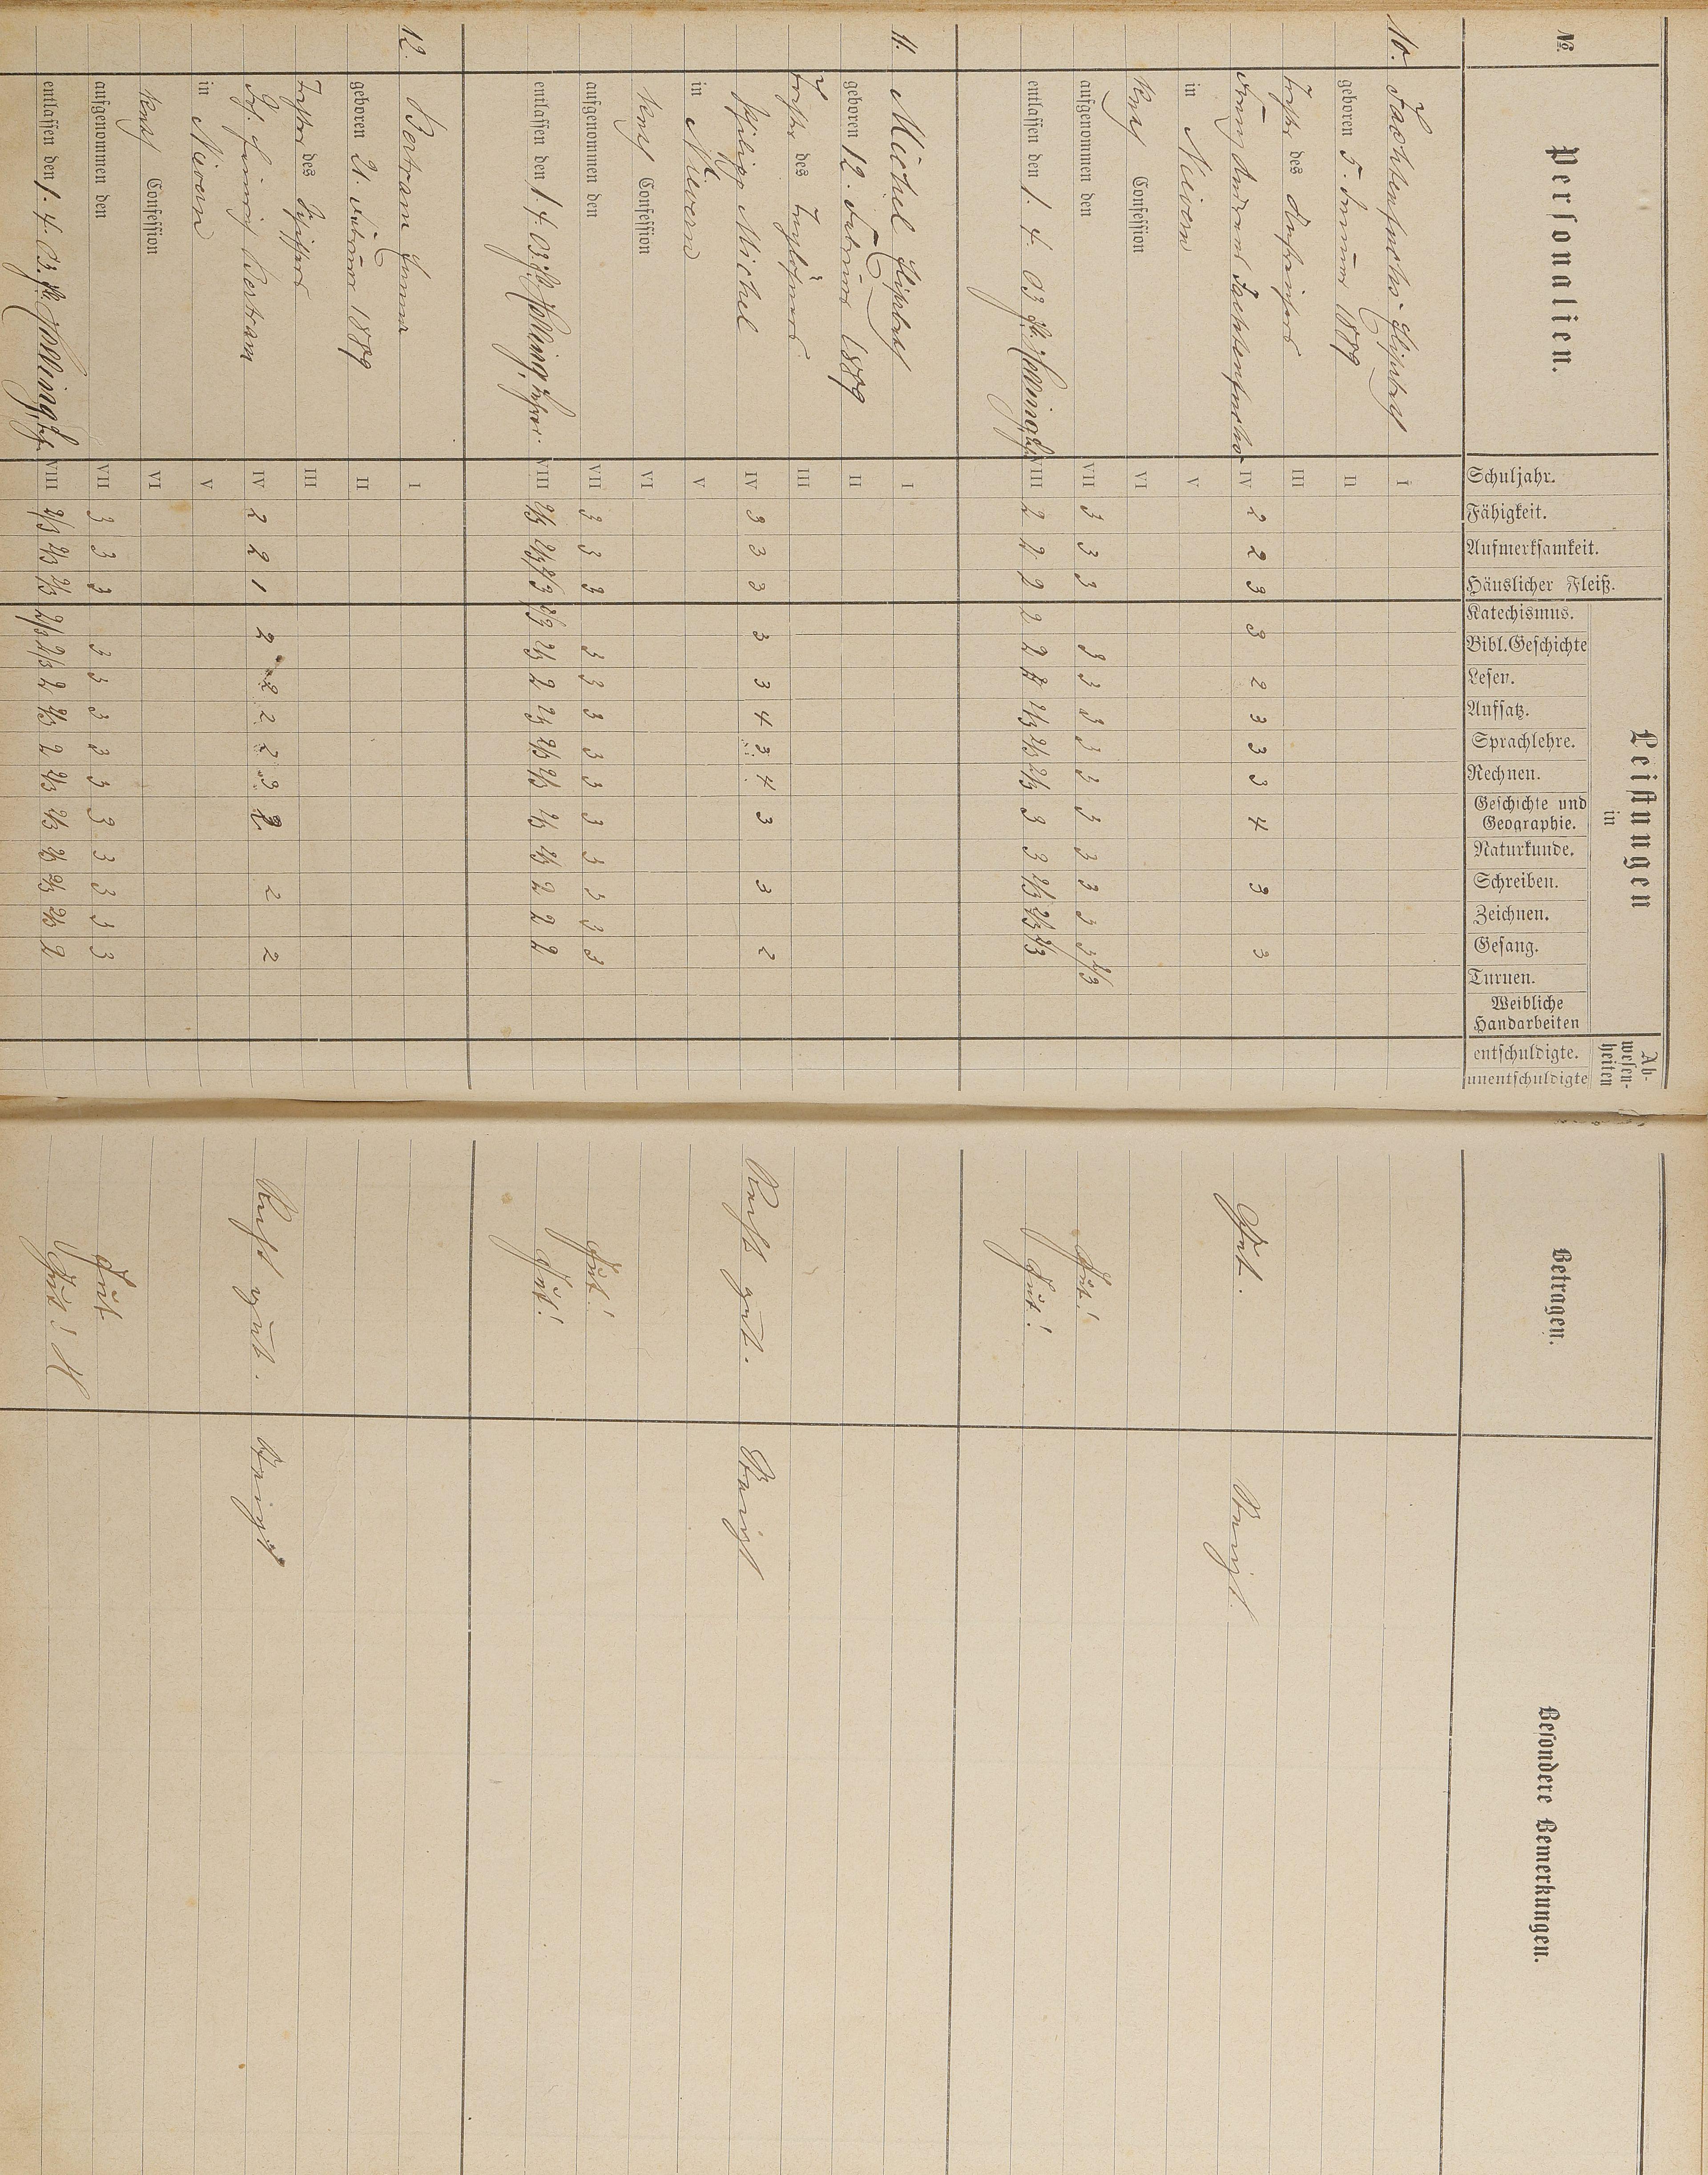 No.
Personalien.
Schuljahr.
Fähigkeit.
Aufmerksamkeit.
Häuslicher Fleiß.
Leistungen
in
Katechismus.
Bibl. Geschichte
Lesen.
Aufsatz.
Sprachlehre.
Rechnen.
Geschichte und
Geographie.
Naturkunde.
Schreiben.
Zeichnen.
Gesang.
Turnen.
Weibliche
Handarbeiten
Ab-
wesen-
heiten
entschuldigte.
unentschuldigte
Betragen.
Besondere Bemerkungen.
10. I
geboren 5. Januar 1889 II
Tochter des III
IV 2 2 3 3 2 3 3 3 4 3 3 Gut.
in Nievern V
Confession VI
aufgenommen den VII 3 3 3 3 3 3 3 3 3 3 3 3 3 2/3 Gut!
entlassen den 1. 4. 03. VIII 2 2 2 2 2 2 2/3 2/3 2/3 3 3 2/3 2/3 2/3 Gut!
11. Michel Elisabeth I
geboren 12. Februar 1889 II
Tochter des Taglöhners III
Philipp Michel IV 3 3 3 3 3 4 3 4 3 3 2 Recht gut.
in Nievern V
Confession VI
aufgenommen den VII 3 3 3 3 3 3 3 3 3 3 3 3 3 Gut!
entlassen den 1. 4. 03. VIII 2/3 2/3 2/3 2/3 2/3 2 2/3 2/3 2/3 2/3 2/3 2 2 2 Gut!
12. Bertram Emma I
geboren 21. Februar 1889 II
Tochter des Schiffers III
Bertram IV 2 2 1 2 2 2 2 3 2 2 2 Recht gut.
in Nievern V
Confession VI
aufgenommen den VII 3 3 3 3 3 3 3 3 3 3 3 3 3 Gut
entlassen den 1. 4. 03. VIII 2/3 2/3 2/3 2/3 2/3 2 2/3 2 2/3 2/3 2/3 2/3 2/3 2 Gut!